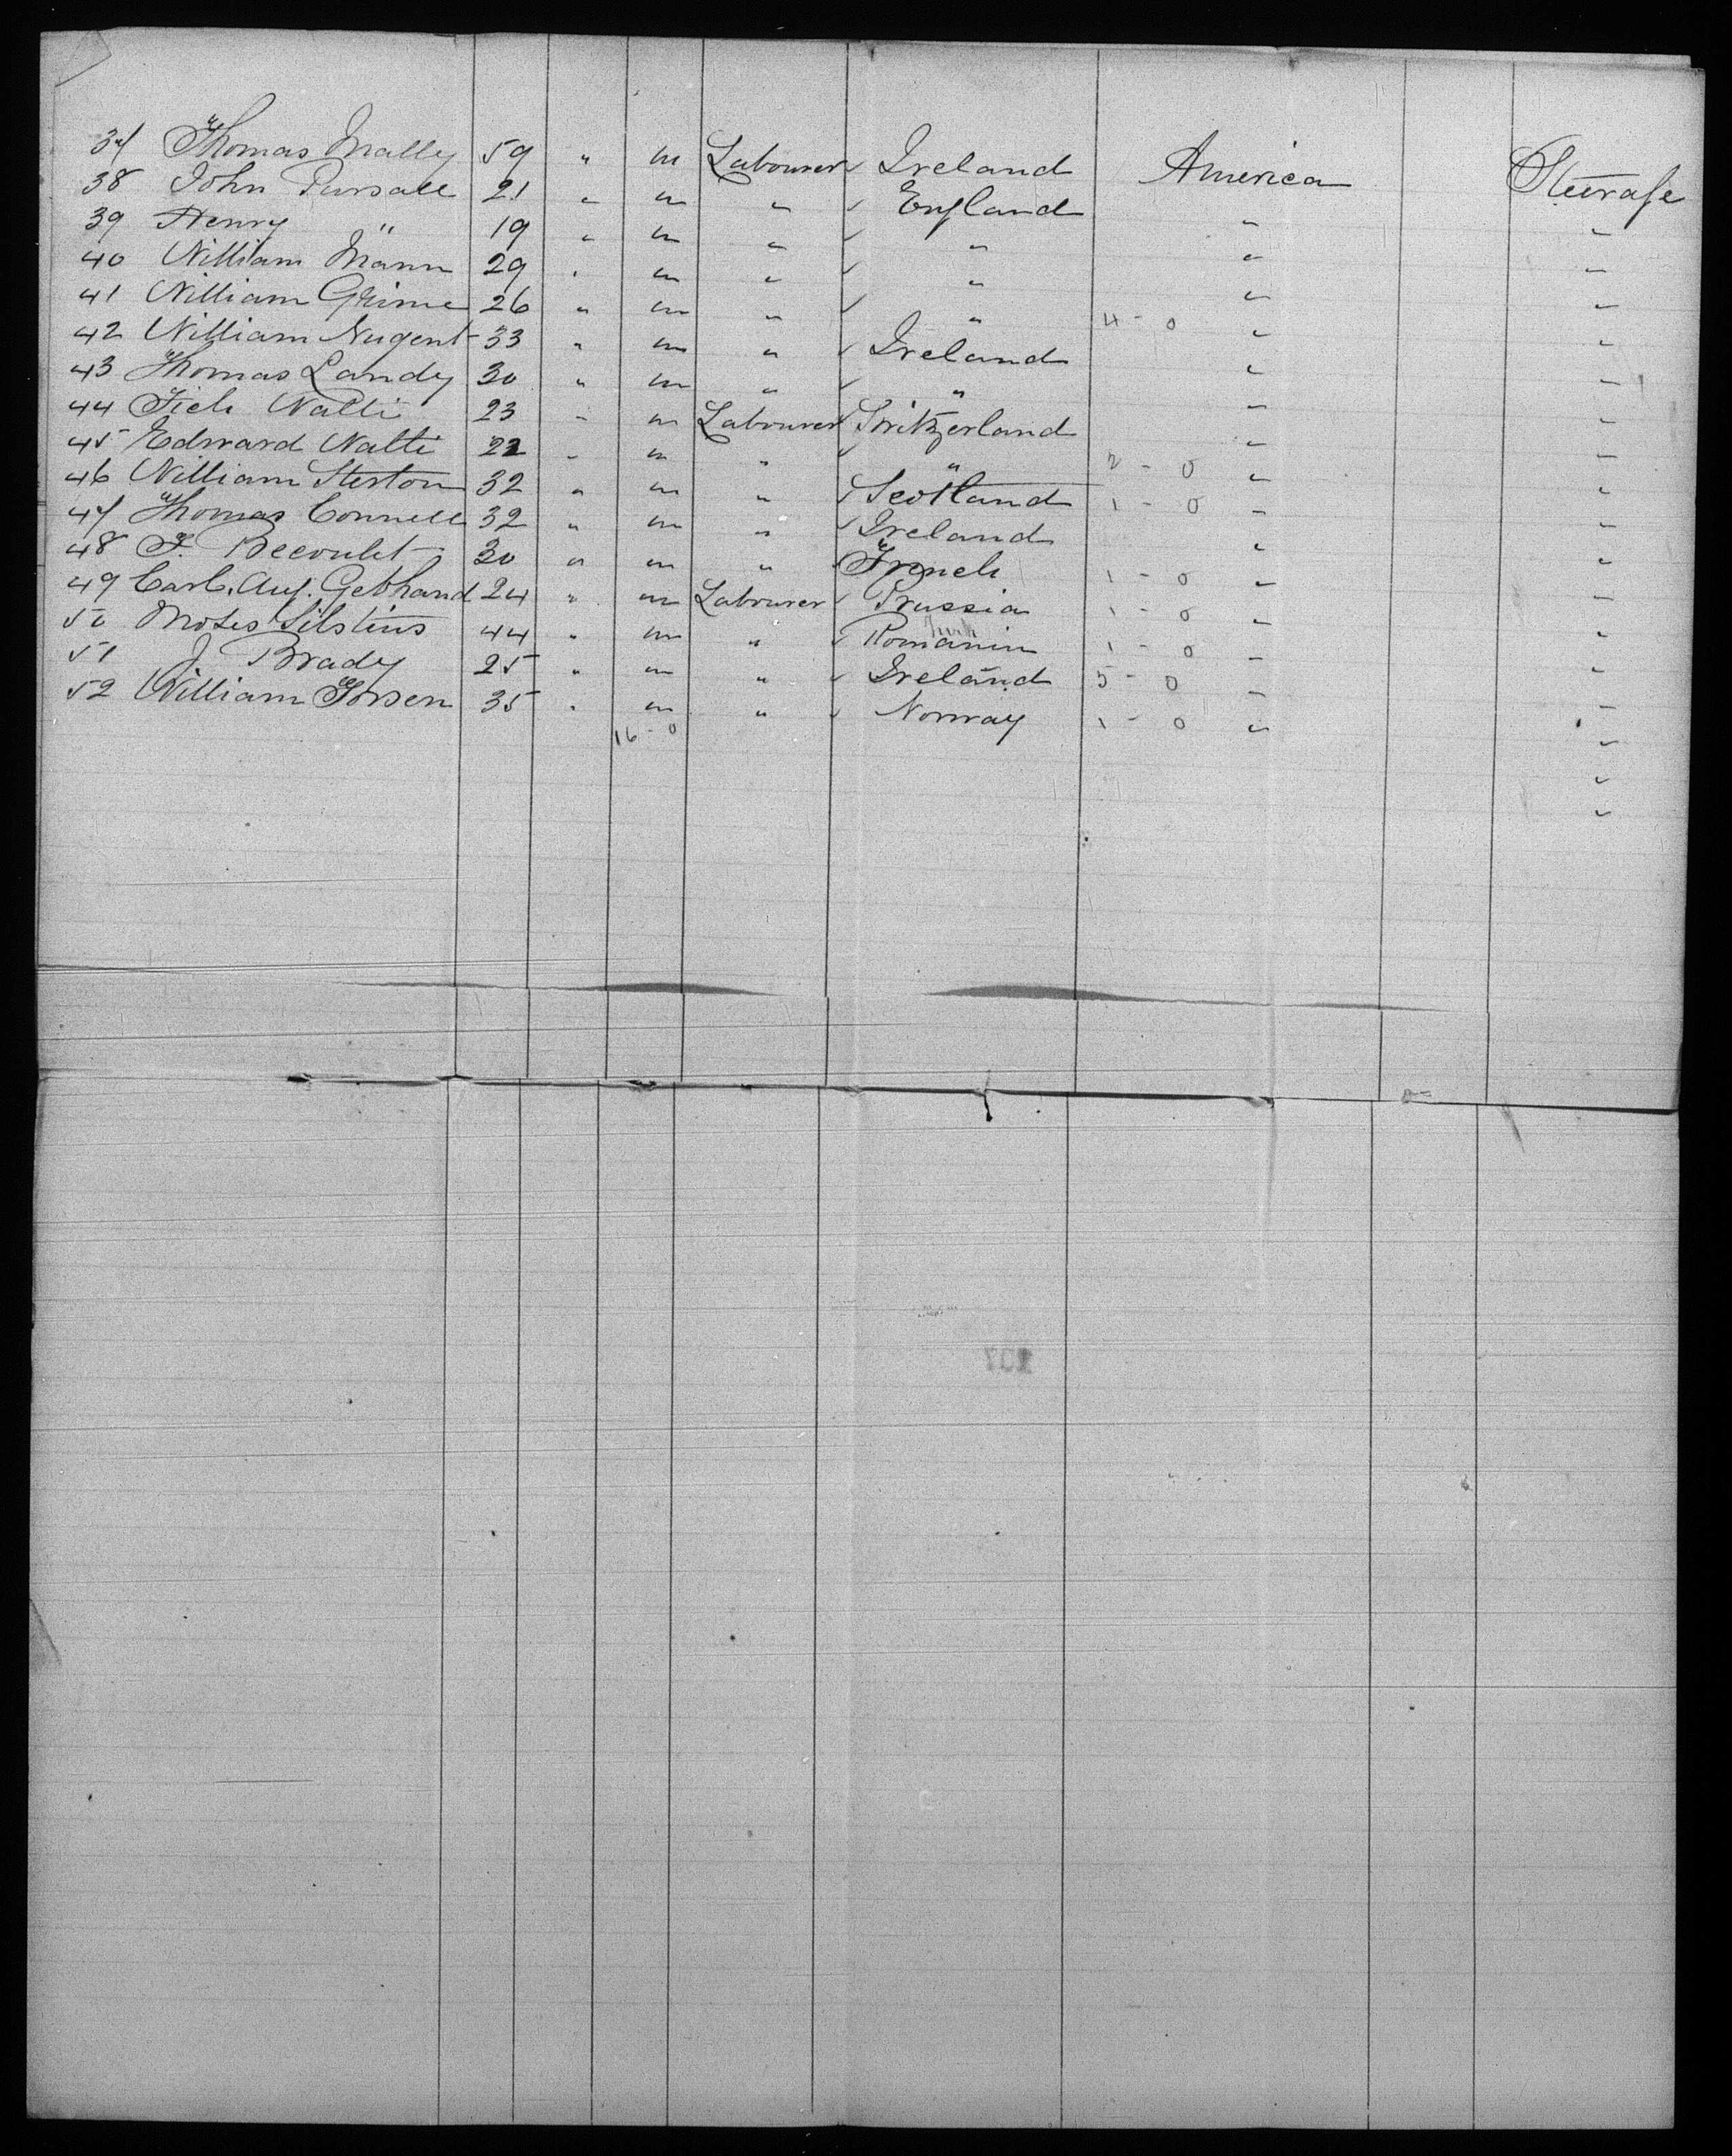 37 Thomas Mally 59 " m Labourer Ireland America Steerage
38 John Pursall 21 " m " England " "
39 Henry " 19 " m " " " "
40 William Mann 29 " m " " " "
41 William Grime 26 " m " " 4 - 0 " "
42 William Nugent 33 " m " Ireland " "
43 Thomas Landy 30 " m " " " "
44 Natti 23 " m Labourer Switzerland " "
45 Edward Natti 22 " m " " 2 - 0 " "
46 William Sterton 32 " m " Scotland 1 - 0 " "
47 Thomas Connell 32 " m " Ireland " "
48 F. 30 " m " French 1 - 0 " "
49 Carl. Aug. Gebhand 24 " m Labourer Prussia 1 - 0 " "
50 Moses 44 " m " 1 - 0 " "
51 J Brady 25 " m " Ireland 5 - 0 " "
52 William 35 " m " Norway 1 - 0 " "
16 - 0